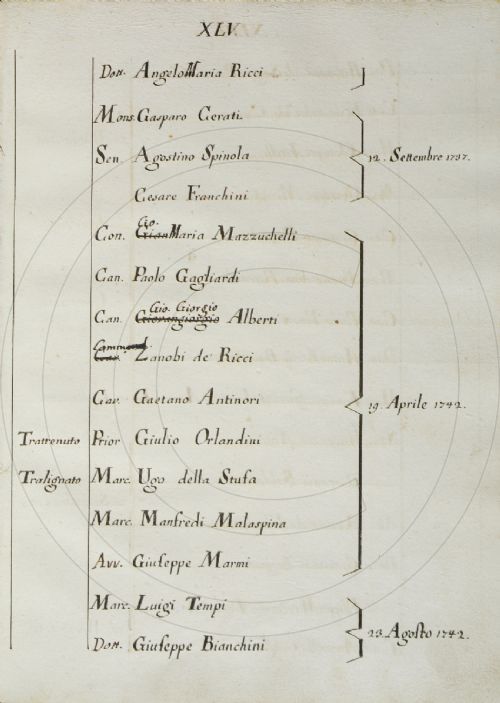 XLV
Dott. Angelo Maria Ricci
Mons. Gasparo Cerati
Sen. Agostino Spinola
12. Settembre 1737.
Cesare Franchini
Gio.
Con. Gian Maria Mazzuchelli
Can. Paolo Gagliardi
Gio. Giorgio
Can. Alberti
Commend.
Zanobi de' Ricci
Cav. Gaetano Antinori
19. Aprile 1742.
Trattenuto Prior Giulio Orlandini
Tralignato Marc. Ugo della Stufa
Marc. Manfredi Malaspina
Avv. Giuseppe Marmi
Marc. Luigi Tempi
23. Agosto 1742.
Dott. Giuseppe Bianchini